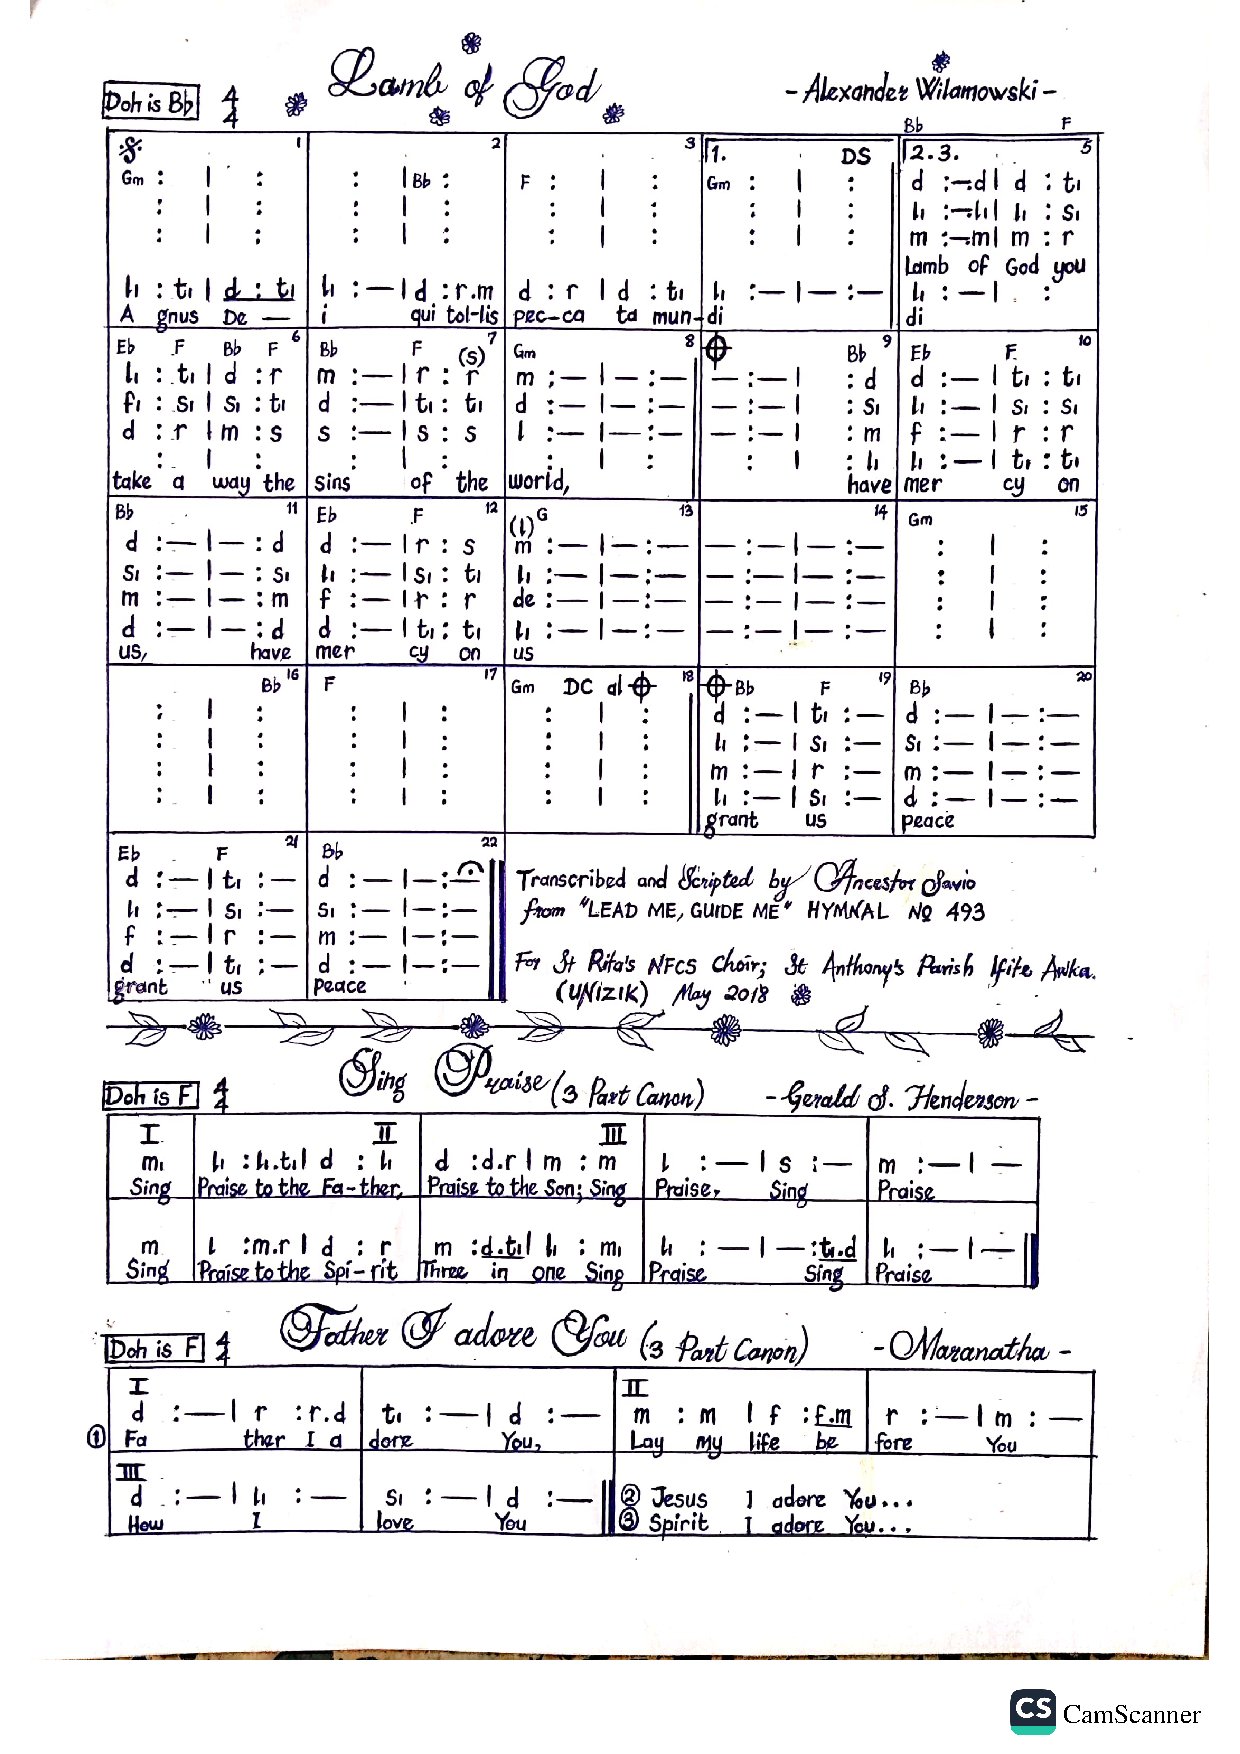 Lamb of God
Doh is B♭ 4/4 - Alexander Wilamowski -
B♭ F
1 2 3 1. DS 2.3. 5
Gm : | : : | B♭ : F : | : Gm : | : d :—.d | d : t₁
: | : : | : : | : : | : l₁ :—.l₁ | l₁ : s₁
: | : : | : : | : : | : m :—.m | m : r
Lamb of God you
l₁ : t₁ | d : t₁ l₁ :— | d : r.m d : r | d : t₁ l₁ :— | — :— l₁ : — | . :
A gnus De — i qui tol-lis pec-ca ta mun-di di
E♭ F B♭ F 6 B♭ F (s) 7 Gm 8 B♭ 9 E♭ F 10
l₁ : t₁ | d : r m :— | r : r m :— | — :— — :— | : d d :— | t₁ : t₁
f₁ : s₁ | s₁ : t₁ d :— | t₁ : t₁ d :— | — :— — :— | : s₁ l₁ :— | s₁ : s₁
d : r | m : s s :— | s : s l :— | — :— — :— | : m f :— | r : r
: | : : | : : | : : | : l₁ l₁ :— | t₁ : t₁
take a way the sins of the world, have mer cy on
B♭ 11 E♭ F 12 (l) G 13 14 Gm 15
d :— | — : d d :— | r : s m :— | — :— — :— | — :— : | :
s₁ :— | — : s₁ l₁ :— | s₁ : t₁ l₁ :— | — :— — :— | — :— : | :
m :— | — : m f :— | r : r de :— | — :— — :— | — :— : | :
d :— | — : d d :— | t₁ : t₁ l₁ :— | — :— — :— | — :— : | :
us, have mer cy on us
B♭ 16 F 17 Gm DC al 18 B♭ F 19 B♭ 20
: | : : | : : | : d :— | t₁ :— d :— | — :—
: | : : | : : | : l₁ :— | s₁ :— s₁ :— | — :—
: | : : | : : | : m :— | r :— m :— | — :—
: | : : | : : | : l₁ :— | s₁ :— d :— | — :—
grant us peace
E♭ F 21 B♭ 22
d :— | t₁ :— d :— | — :— Transcribed and Scripted by Ancestor Savio
l₁ :— | s₁ :— s₁ :— | — :— from "LEAD ME, GUIDE ME" HYMNAL No 493
f :— | r :— m :— | — :—
d :— | t₁ :— d :— | — :— For St Rita's NFCS Choir; St Anthony's Parish Ifite Awka.
grant us Peace (UNIZIK) May 2018
Sing Praise (3 Part Canon)
Doh is F 4/4 - Gerald S. Henderson -
I II III
m₁ l₁ : l₁.t₁ | d : l₁ d : d.r | m : m l :— | s :— m :— | —
Sing Praise to the Fa-ther, Praise to the Son; Sing Praise, Sing Praise
m l : m.r | d : r m : d.t₁ | l₁ : m₁ l₁ :— | — : t₁.d l₁ :— | —
Sing Praise to the Spi-rit Three in one Sing Praise Sing Praise
Father I adore You (3 Part Canon)
Doh is F 4/4 - Maranatha -
I II
d :— | r : r.d t₁ :— | d :— m : m | f : f.m r :— | m :—
① Fa ther I a dore You, Lay my life be fore You
III
d :— | l₁ :— s₁ :— | d :— ② Jesus I adore You...
How I love You ③ Spirit I adore You...
CS CamScanner